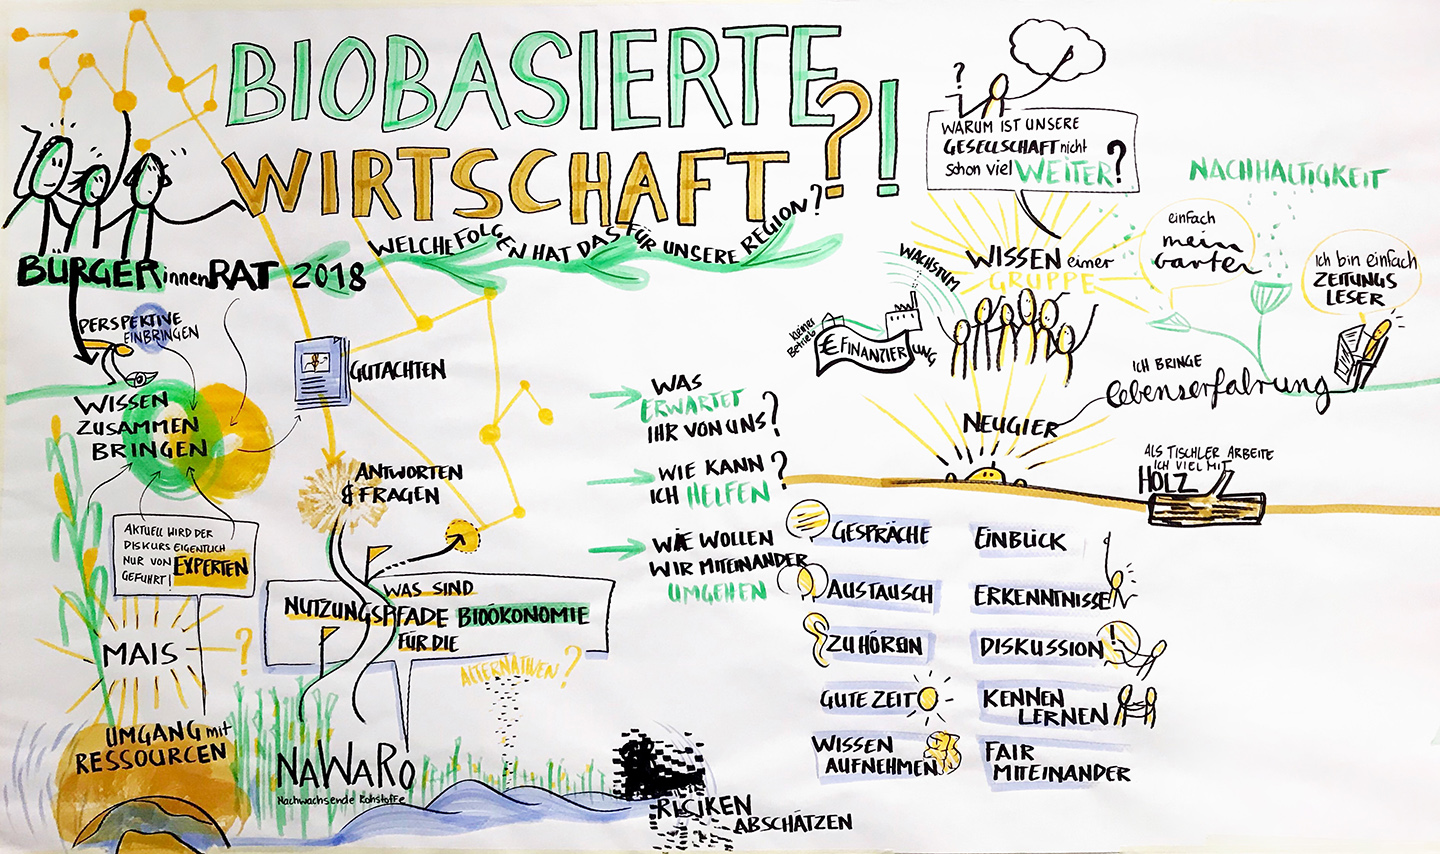 BIOBASIERTE
WIRTSCHAFT?!
WELCHE FOLGEN HAT DAS FÜR UNSERE REGION?
BÜRGERinnenRAT 2018
PERSPEKTIVE
EINBRINGEN
WISSEN
ZUSAMMEN
BRINGEN
GUTACHTEN
ANTWORTEN
& FRAGEN
AKTUELL WIRD DER
DISKURS EIGENTLICH
NUR VON EXPERTEN
GEFÜHRT!
MAIS
?
UMGANG mit
RESSOURCEN
WAS SIND
NUTZUNGSPFADE BIOÖKONOMIE
FÜR DIE
ALTERNATIVEN?
NAWARO
Nachwachsende Rohstoffe
RISIKEN
ABSCHÄTZEN
WAS
ERWARTET
IHR VON UNS?
WIE KANN
ICH HELFEN?
WIE WOLLEN
WIR MITEINANDER
UMGEHEN
?
WARUM IST UNSERE
GESELLSCHAFT nicht
schon viel WEITER?
WISSEN einer
GRUPPE
WACHSTUM
kleiner
Betrieb
€ FINANZIERUNG
NACHHALTIGKEIT
einfach
mein
Garten
Ich bin einfach
ZEITUNGS
LESER
ICH BRINGE
lebenserfahrung
NEUGIER
ALS TISCHLER ARBEITE
ICH VIEL MIT
HOLZ
GESPRÄCHE
AUSTAUSCH
ZUHÖREN
GUTE ZEIT
WISSEN
AUFNEHMEN
EINBLICK
ERKENNTNISSE
DISKUSSION
!
KENNEN
LERNEN
FAIR
MITEINANDER